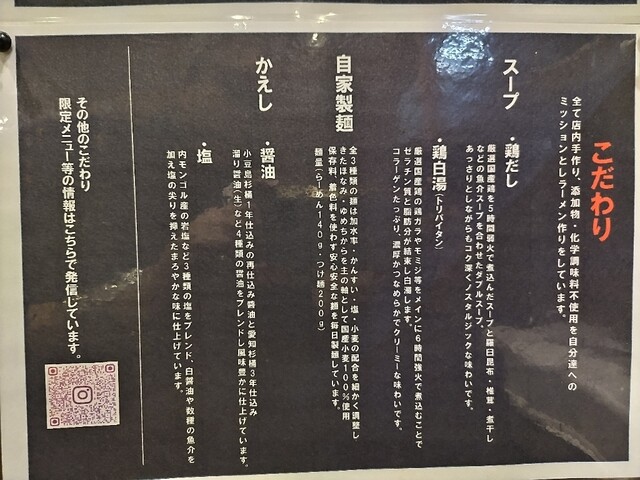 こだわり
全て店内手作り、添加物・化学調味料不使用を自分達への
ミッションとしラーメン作りをしています。
スープ
・鶏だし
厳選国産鶏を5時間弱火で煮込んだスープと羅臼昆布・椎茸・煮干し
などの魚介スープを合わせたダブルスープ。
あっさりとしながらもコク深くノスタルジックな味わいです。
・鶏白湯(トリパイタン)
厳選国産鶏の鶏ガラやモミジ等をメインに6時間強火で煮込むことで
ゼラチン質と脂肪分が結束し白濁します。
コラーゲンたっぷり、濃厚かつなめらかでクリーミーな味わいです。
自家製麺
全3種類の麺は加水率・かんすい・塩・小麦の配合を細かく調整し
きたほなみ・ゆめちからを主の軸として国産小麦100%使用
保存料、着色料を使わず安心安全な麺を毎日製麺しています。
麺量(らーめん140g・つけ麺200g)
かえし
・醤油
小豆島杉桶1年仕込みの再仕込み醤油と愛知杉桶3年仕込み
溜り醤油(生)など4種類の醤油をブレンドし風味豊かに仕上げています。
・塩
内モンゴル産の岩塩など3種類の塩をブレンド、白醤油や数種の魚介を
加え塩の尖りを抑えたまろやかな味に仕上げています。
その他のこだわり
限定メニュー等の情報はこちらで発信しています。